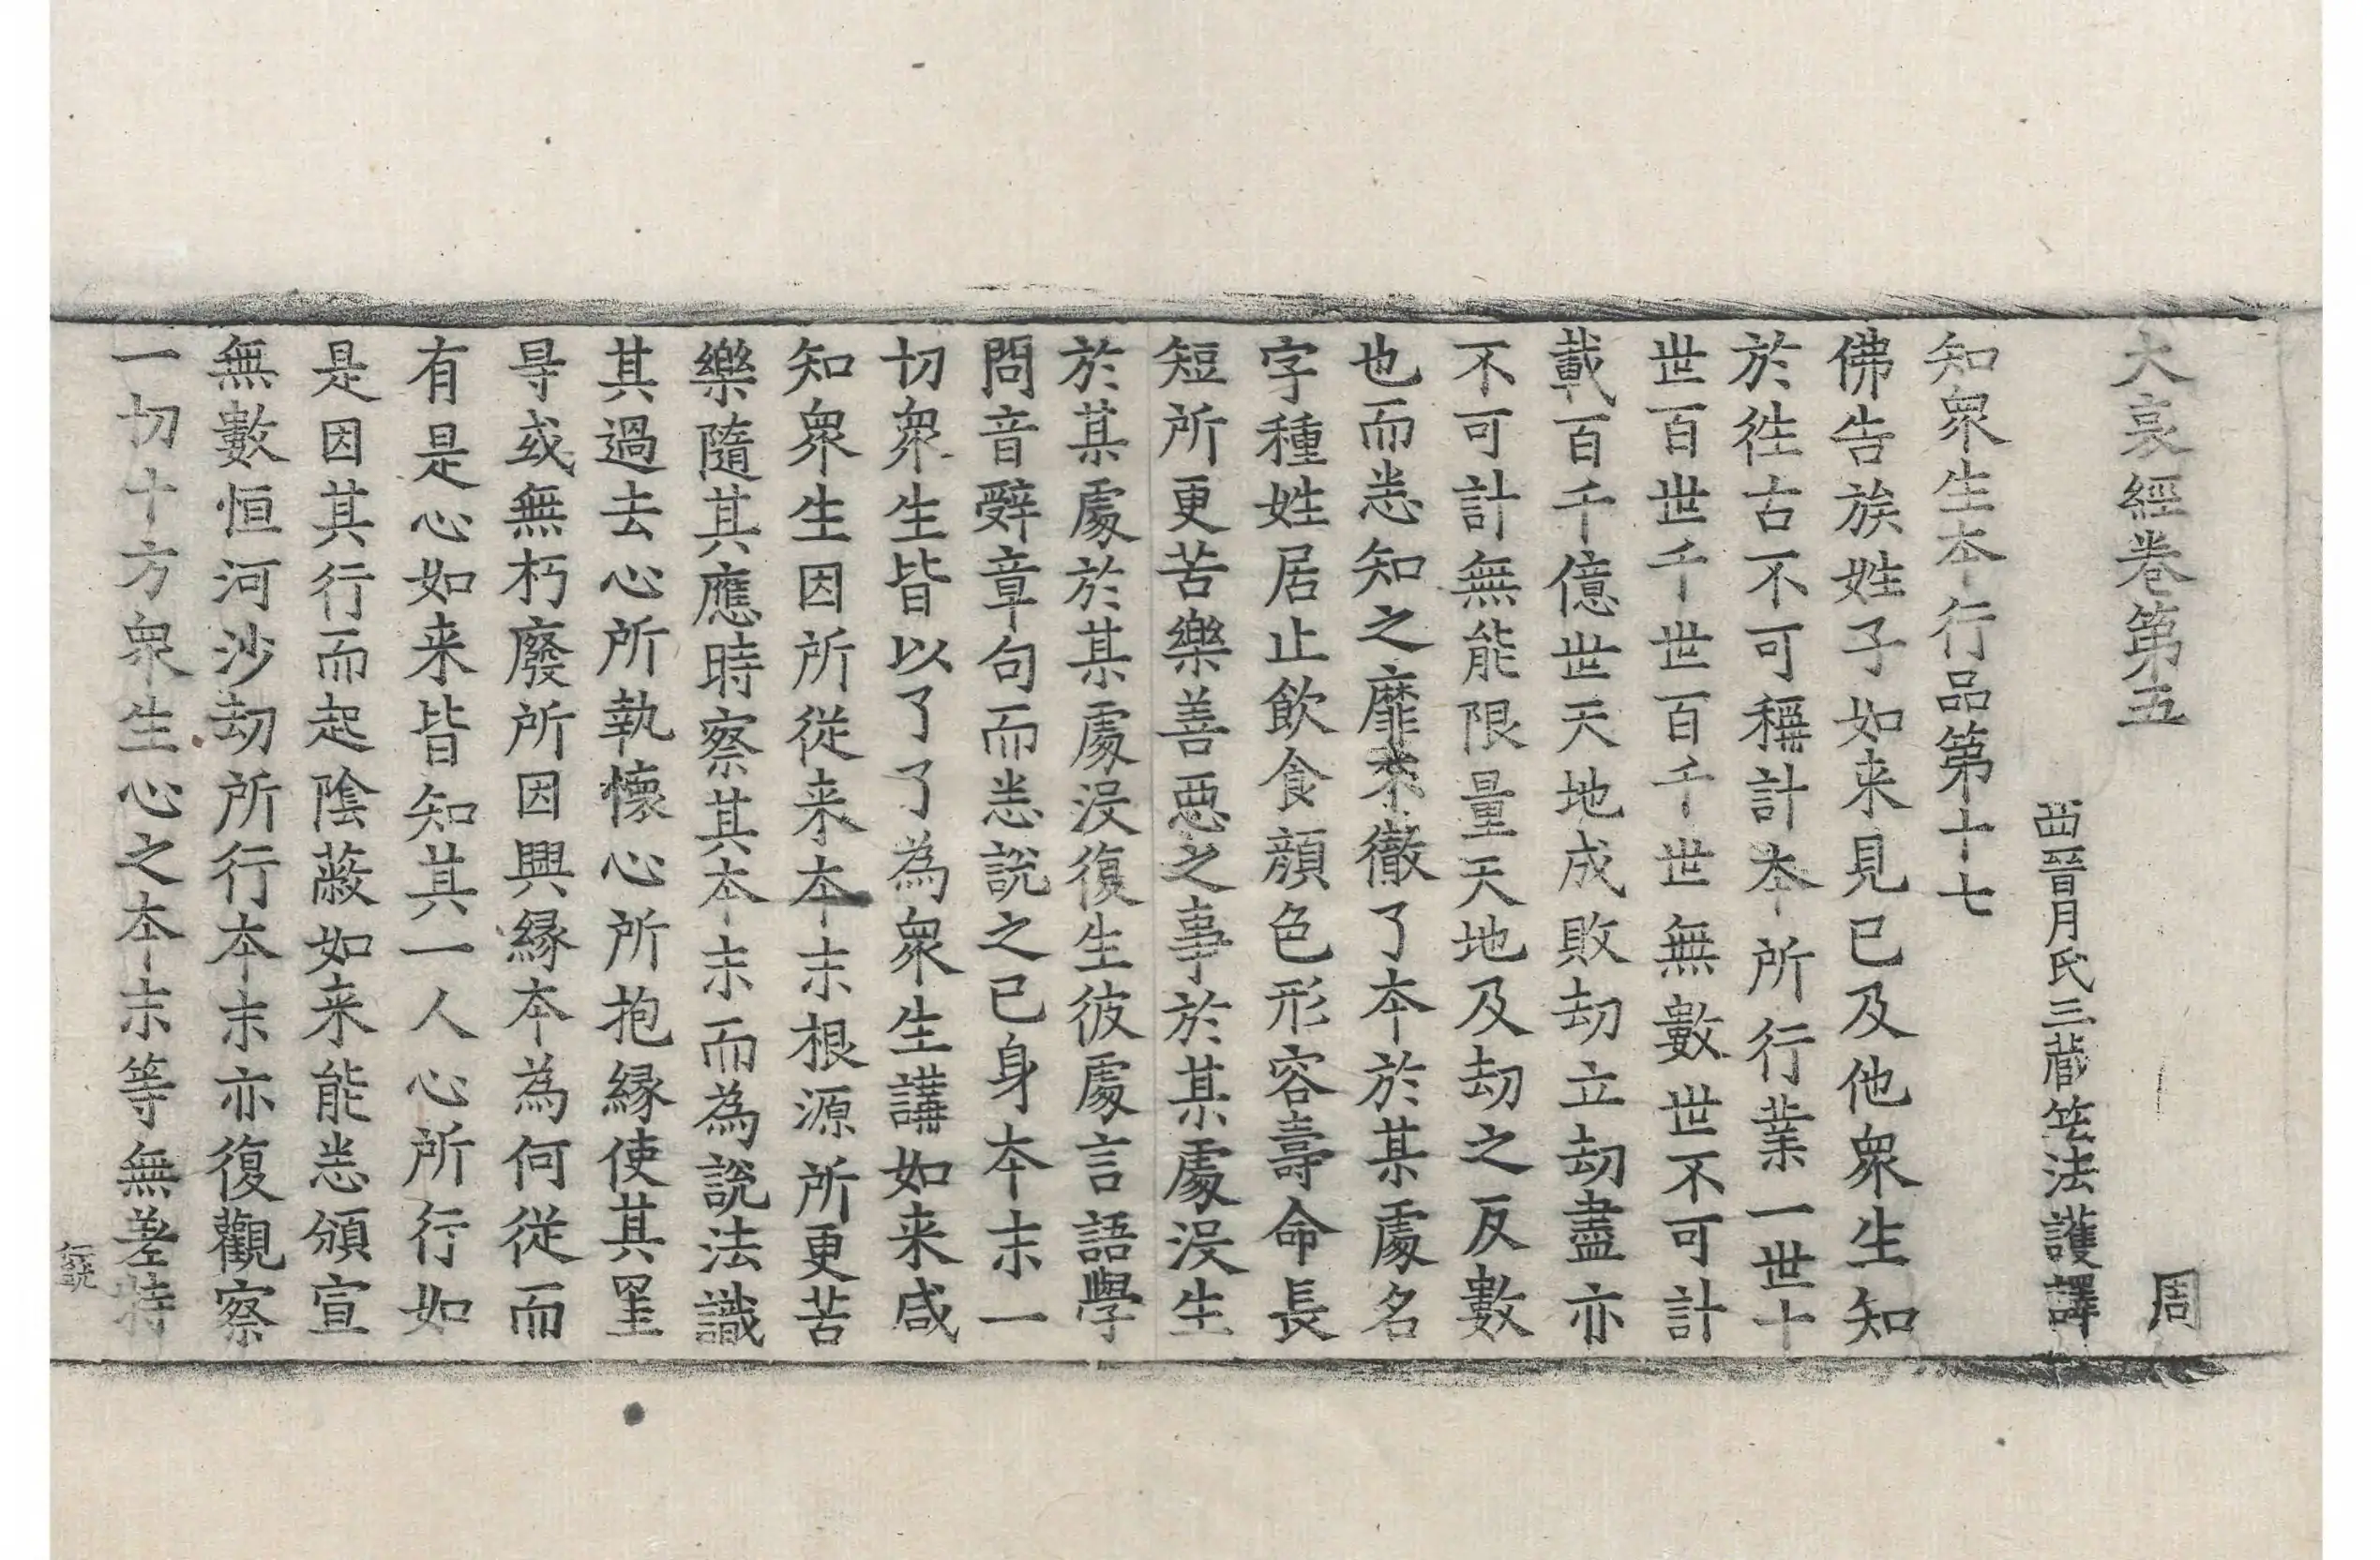 大哀經卷第五 周
西晉月氏三藏竺法護譯
知衆生本行品第十七
佛告族姓子如来見已及他衆生知
於徃古不可稱計本所行業一世十
世百世千世百千世無數世不可計
載百千億世天地成敗劫立劫盡亦
不可計無能限量天地及劫之反數
也而悉知之靡不徹了本於某處名
字種姓居止飲食顔色形容壽命長
短所更苦樂善惡之事於某處没生
於某處於某處没復生彼處言語學
問音辭章句而悉說之已身本末一
切衆生皆以了了為衆生講如来咸
知衆生因所從来本末根源所更苦
樂隨其應時察其本末而為說法識
其過去心所執懷心所抱緣使其罣
㝵或無朽廢所因興緣本為何從而
有是心如来皆知其一人心所行如
是因其行而起陰蔽如来能悉頒宣
無數恒河沙劫所行本末亦復觀察
一切十方衆生心之本末等無差特